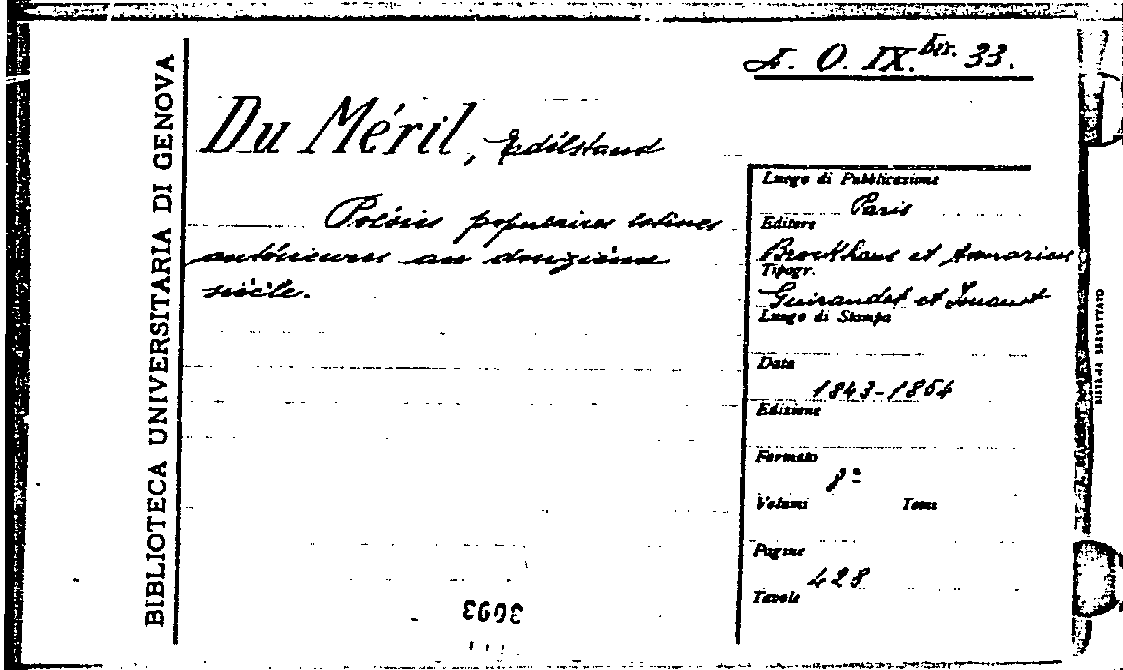 BIBLIOTECA UNIVERSITARIA DI GENOVA
L. O. IX. bis. 33.
Du Méril, Edélstand
Poésies populaires latines
antérieures au douzième
siècle.
Luogo di Pubblicazione
Paris
Editore
Brockhaus et Avenarius
Tipogr.
Guiraudet et Jouaust
Luogo di Stampa
Data
1843-1854
Edizione
Formato
8º
Volumi Tomi
Pagine
428
Tavole
3093